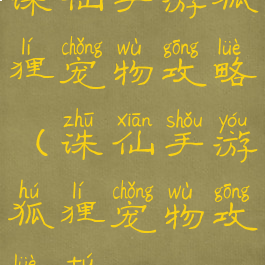 诛仙手游狐
lí chǒng wù gōng lüè
狸宠物攻略
zhū xiān shǒu yóu
（诛仙手游
hú lí chǒng wù gōng
狐狸宠物攻
lüè